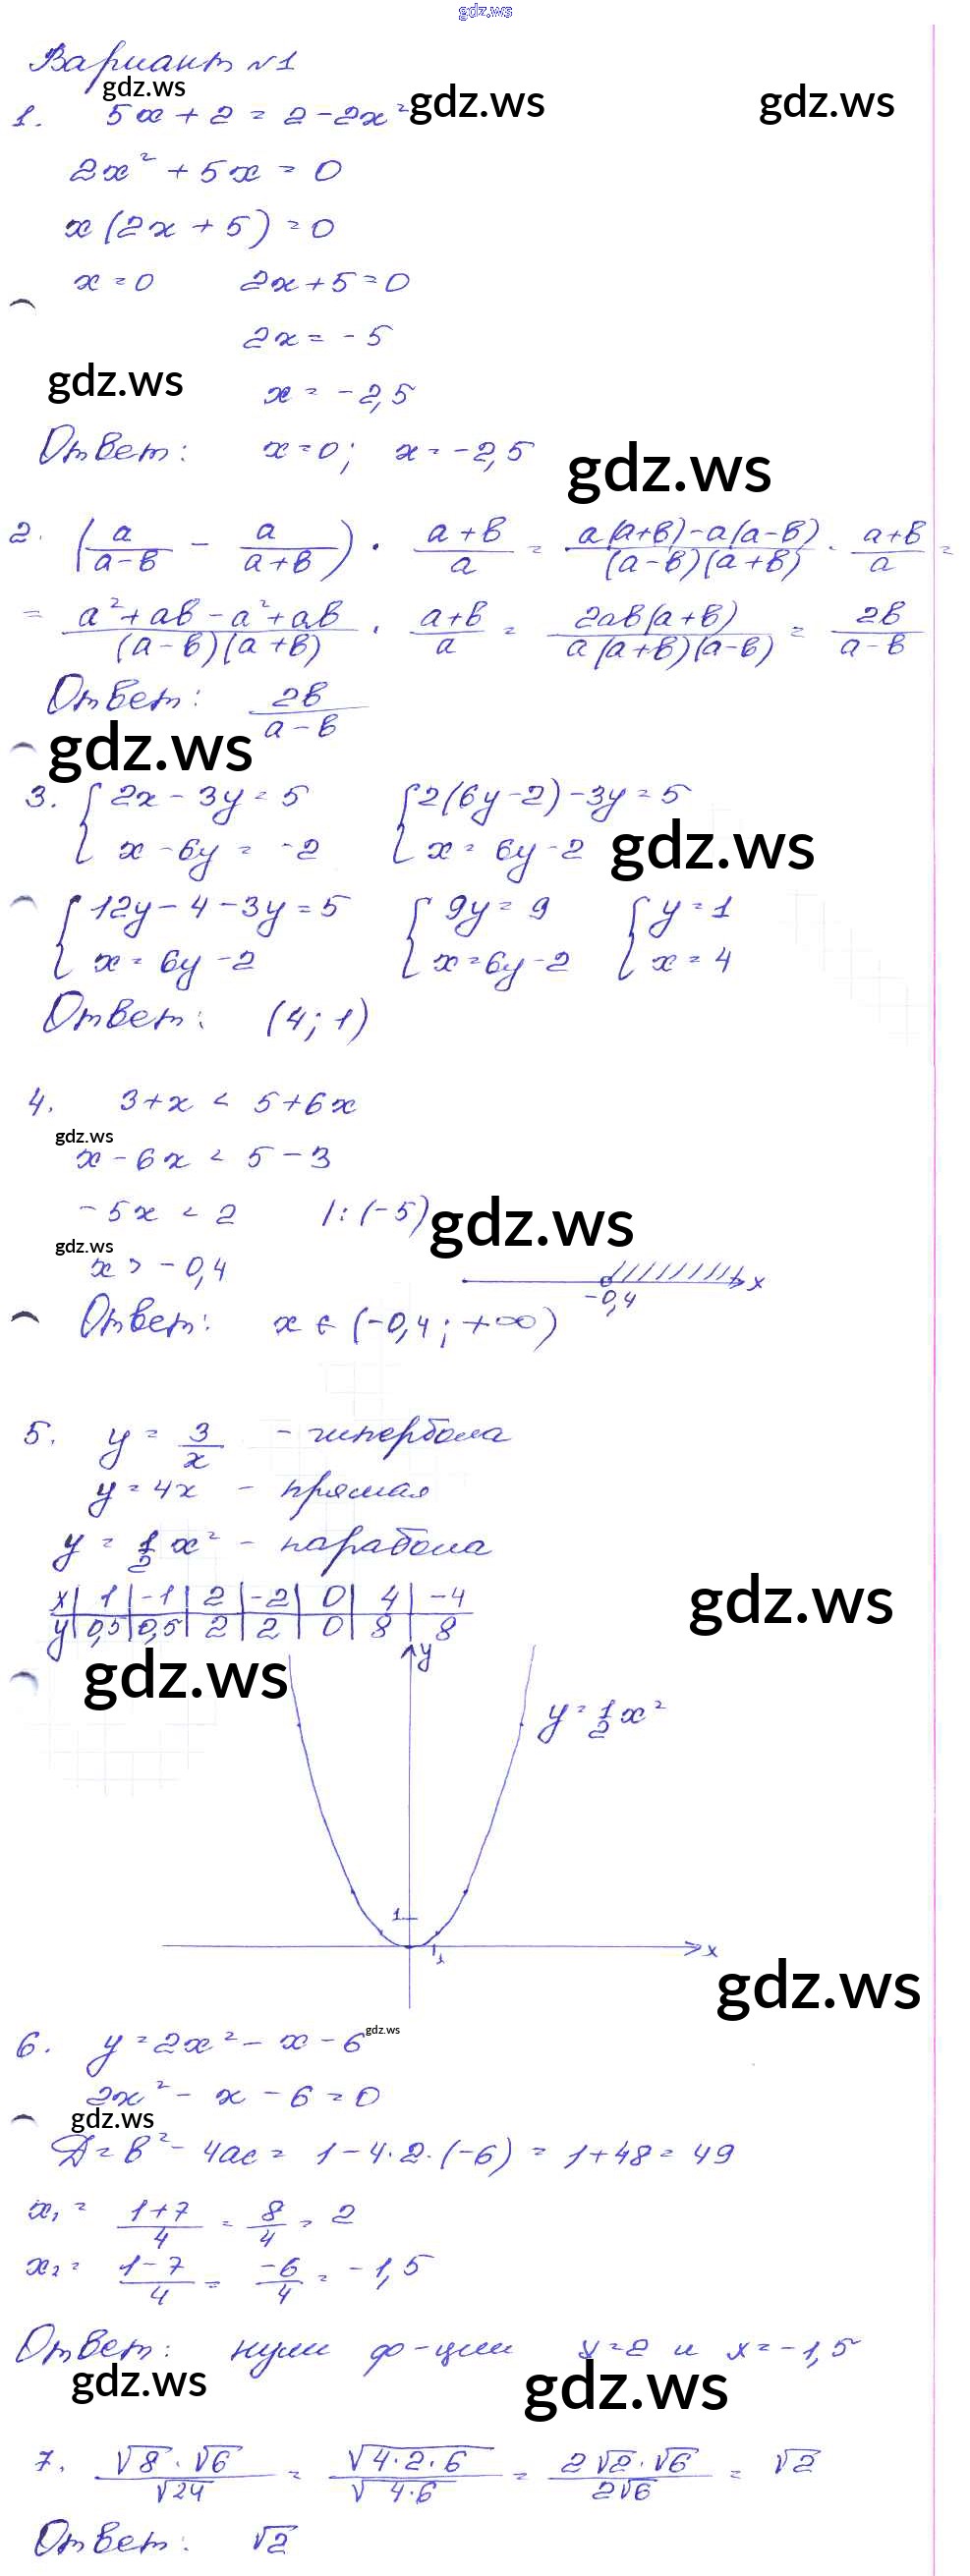 gdz.ws
Вариант №1
gdz.ws
1. 5x + 2 = 2 - 2x²
gdz.ws
gdz.ws
2x² + 5x = 0
x(2x + 5) = 0
x = 0 2x + 5 = 0
2x = -5
gdz.ws
x = -2,5
Ответ: x = 0; x = -2,5
gdz.ws
2. (a/(a-в) - a/(a+в)) · (a+в)/a = (a(a+в)-a(a-в))/((a-в)(a+в)) · (a+в)/a =
= (a²+aв-a²+aв)/((a-в)(a+в)) · (a+в)/a = 2aв(a+в)/(a(a+в)(a-в)) = 2в/(a-в)
Ответ: 2в/(a-в)
gdz.ws
3. { 2x - 3y = 5 { 2(6y-2)-3y = 5
x - 6y = -2 x = 6y-2
gdz.ws
{ 12y - 4 - 3y = 5 { 9y = 9 { y = 1
x = 6y - 2 x = 6y-2 x = 4
Ответ: (4; 1)
4. 3+x < 5+6x
gdz.ws
x - 6x < 5 - 3
-5x < 2 |: (-5)
gdz.ws
gdz.ws
x > -0,4
-0,4 x
Ответ: x ∈ (-0,4; +∞)
5. y = 3/x - гипербола
y = 4x - прямая
y = 1/2 x² - парабола
x | 1 | -1 | 2 | -2 | 0 | 4 | -4
y | 0,5 | 0,5 | 2 | 2 | 0 | 8 | 8
gdz.ws
gdz.ws
y
y = 1/2 x²
1
1
x
gdz.ws
6. y = 2x² - x - 6
gdz.ws
2x² - x - 6 = 0
gdz.ws
Д = в² - 4ac = 1 - 4·2·(-6) = 1+48 = 49
x₁ = (1+7)/4 = 8/4 = 2
x₂ = (1-7)/4 = -6/4 = -1,5
Ответ: нули ф-ции x=2 и x=-1,5
gdz.ws
gdz.ws
7. (√8 · √6)/√24 = √(4·2·6)/√(4·6) = (2√2·√6)/(2√6) = √2
Ответ: √2